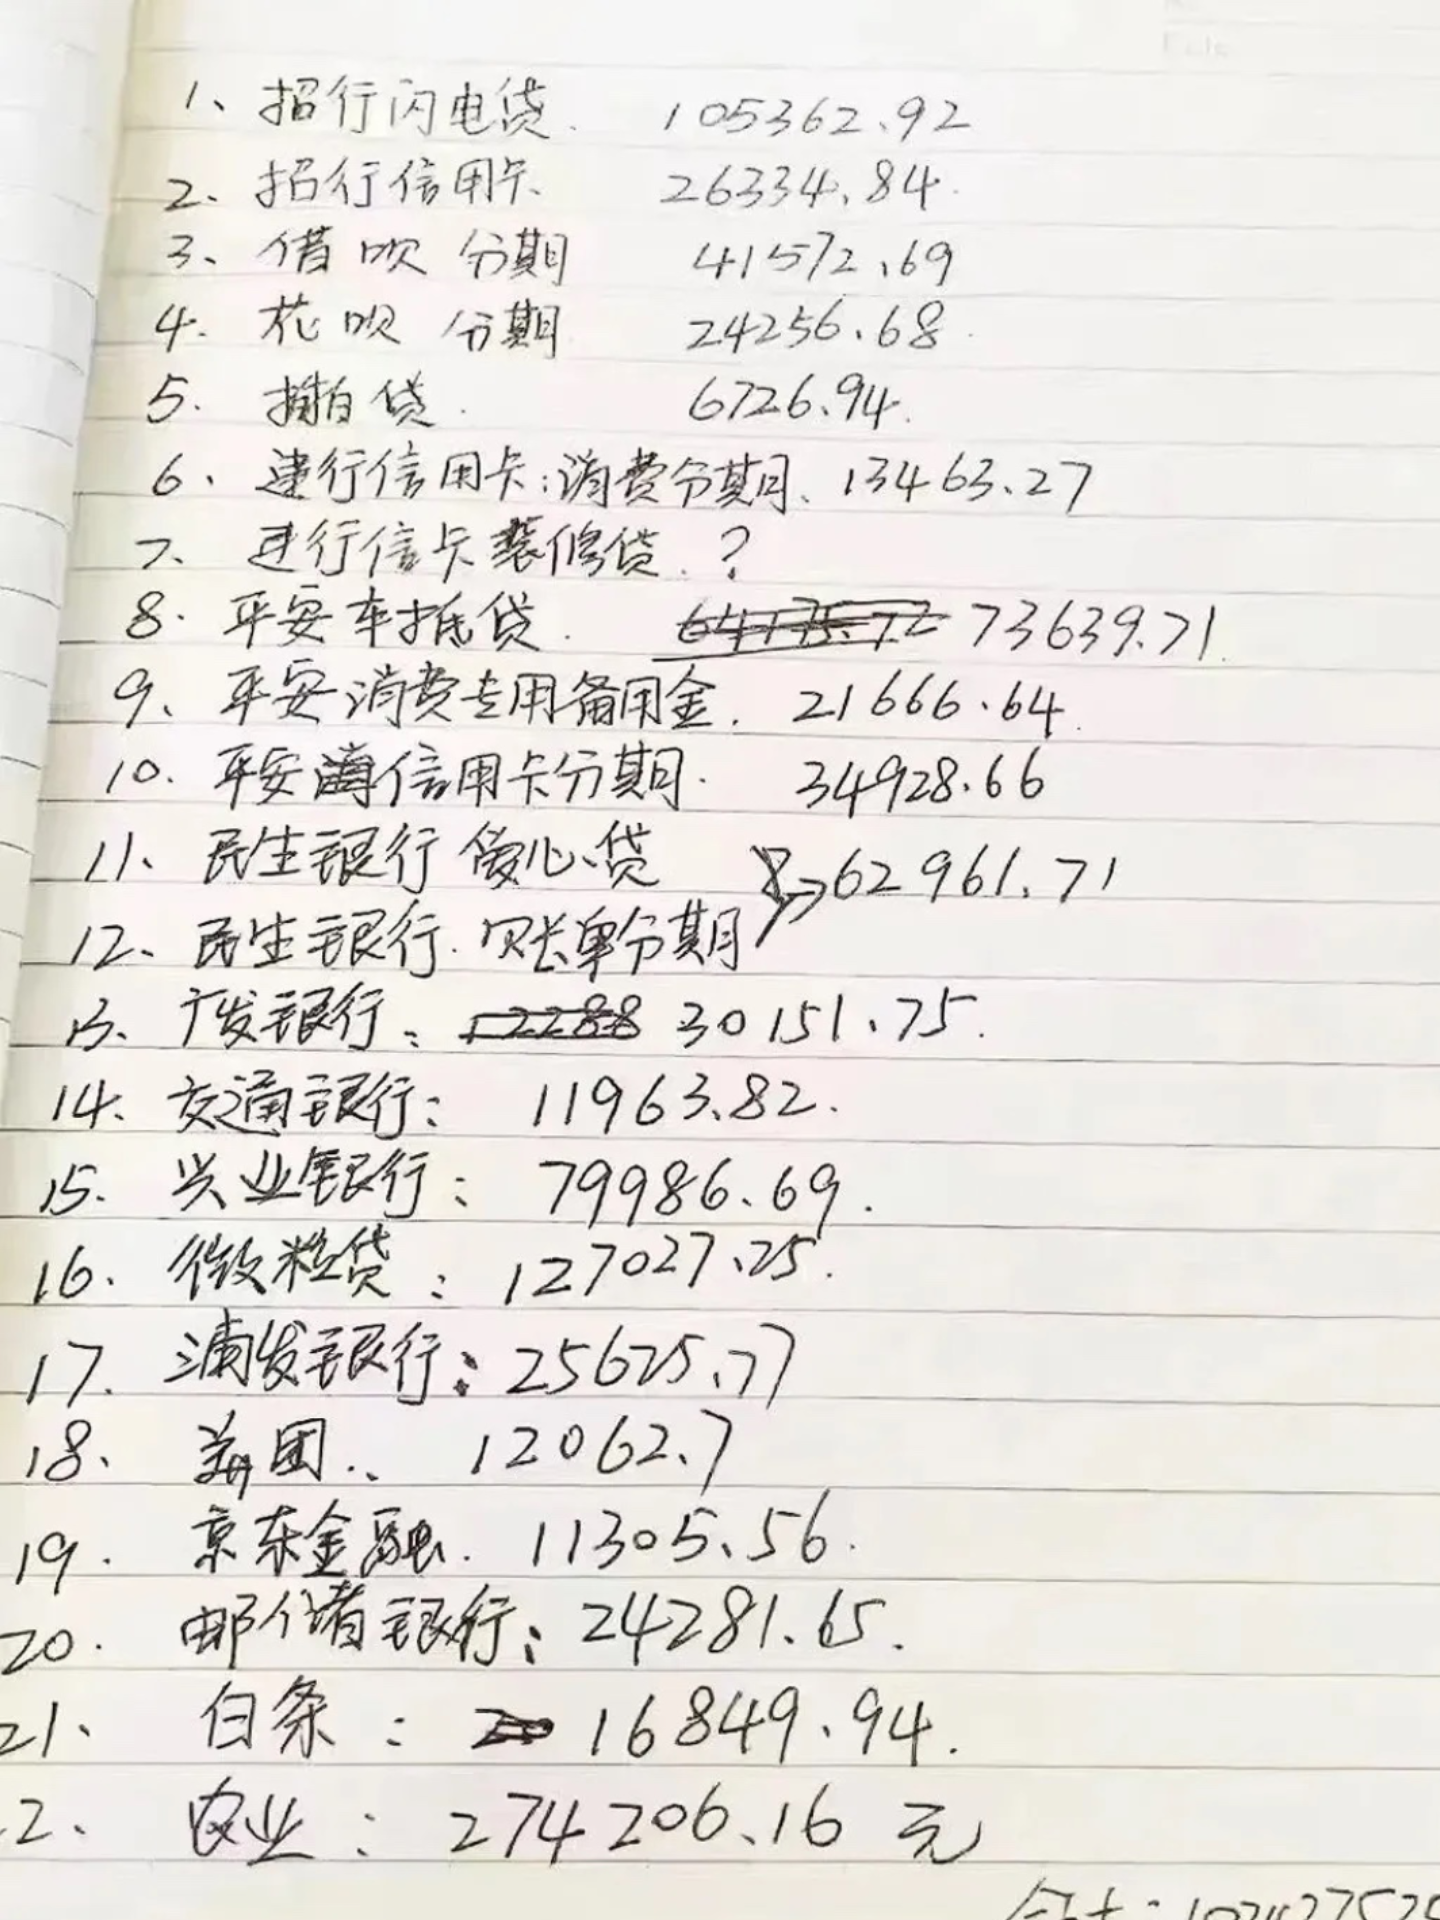 1、招行闪电贷. 105362.92
2、招行信用卡、 26334.84.
3、借呗 分期 41572.69
4. 花呗 分期 24256.68.
5. 贷. 6726.94.
6. 建行信用卡:消费分期、13463.27
7、行信卡装修贷.?
8. 平安车抵贷. 73639.71.
9、平安消费专用备用金. 21666.64.
10. 平安信用卡分期. 34928.66
11、民生银行 心贷
62961.71
12、民生银行. 账单分期
13. 广发银行: 30151.75.
14. 交通银行: 11963.82.
15. 兴业银行: 79986.69.
16. 微粒贷: 127027.25.
17. 浦发银行: 25625.77
18. 美团: 12062.7
19. 京东金融. 11305.56.
20. 邮储银行: 24281.65.
21、白条: 16849.94.
2、农业: 274206.16 元